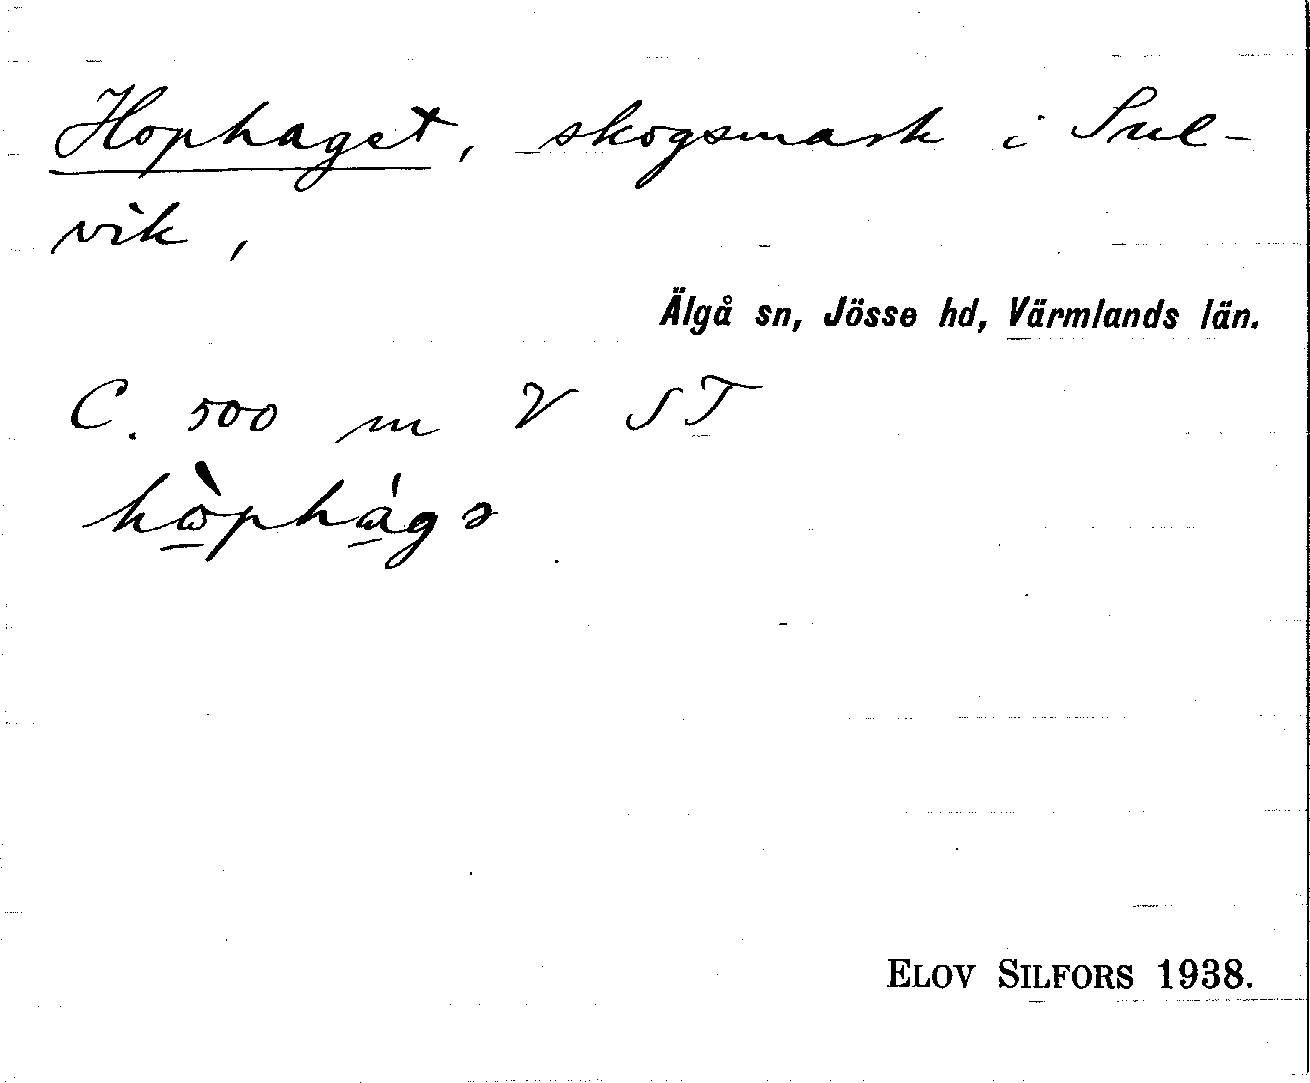 Hophaget, skogsmark i Sul-
vik,
Älgå sn, Jösse hd, Värmlands län.
C. 500 m V ST
ELOV SILFORS 1938.